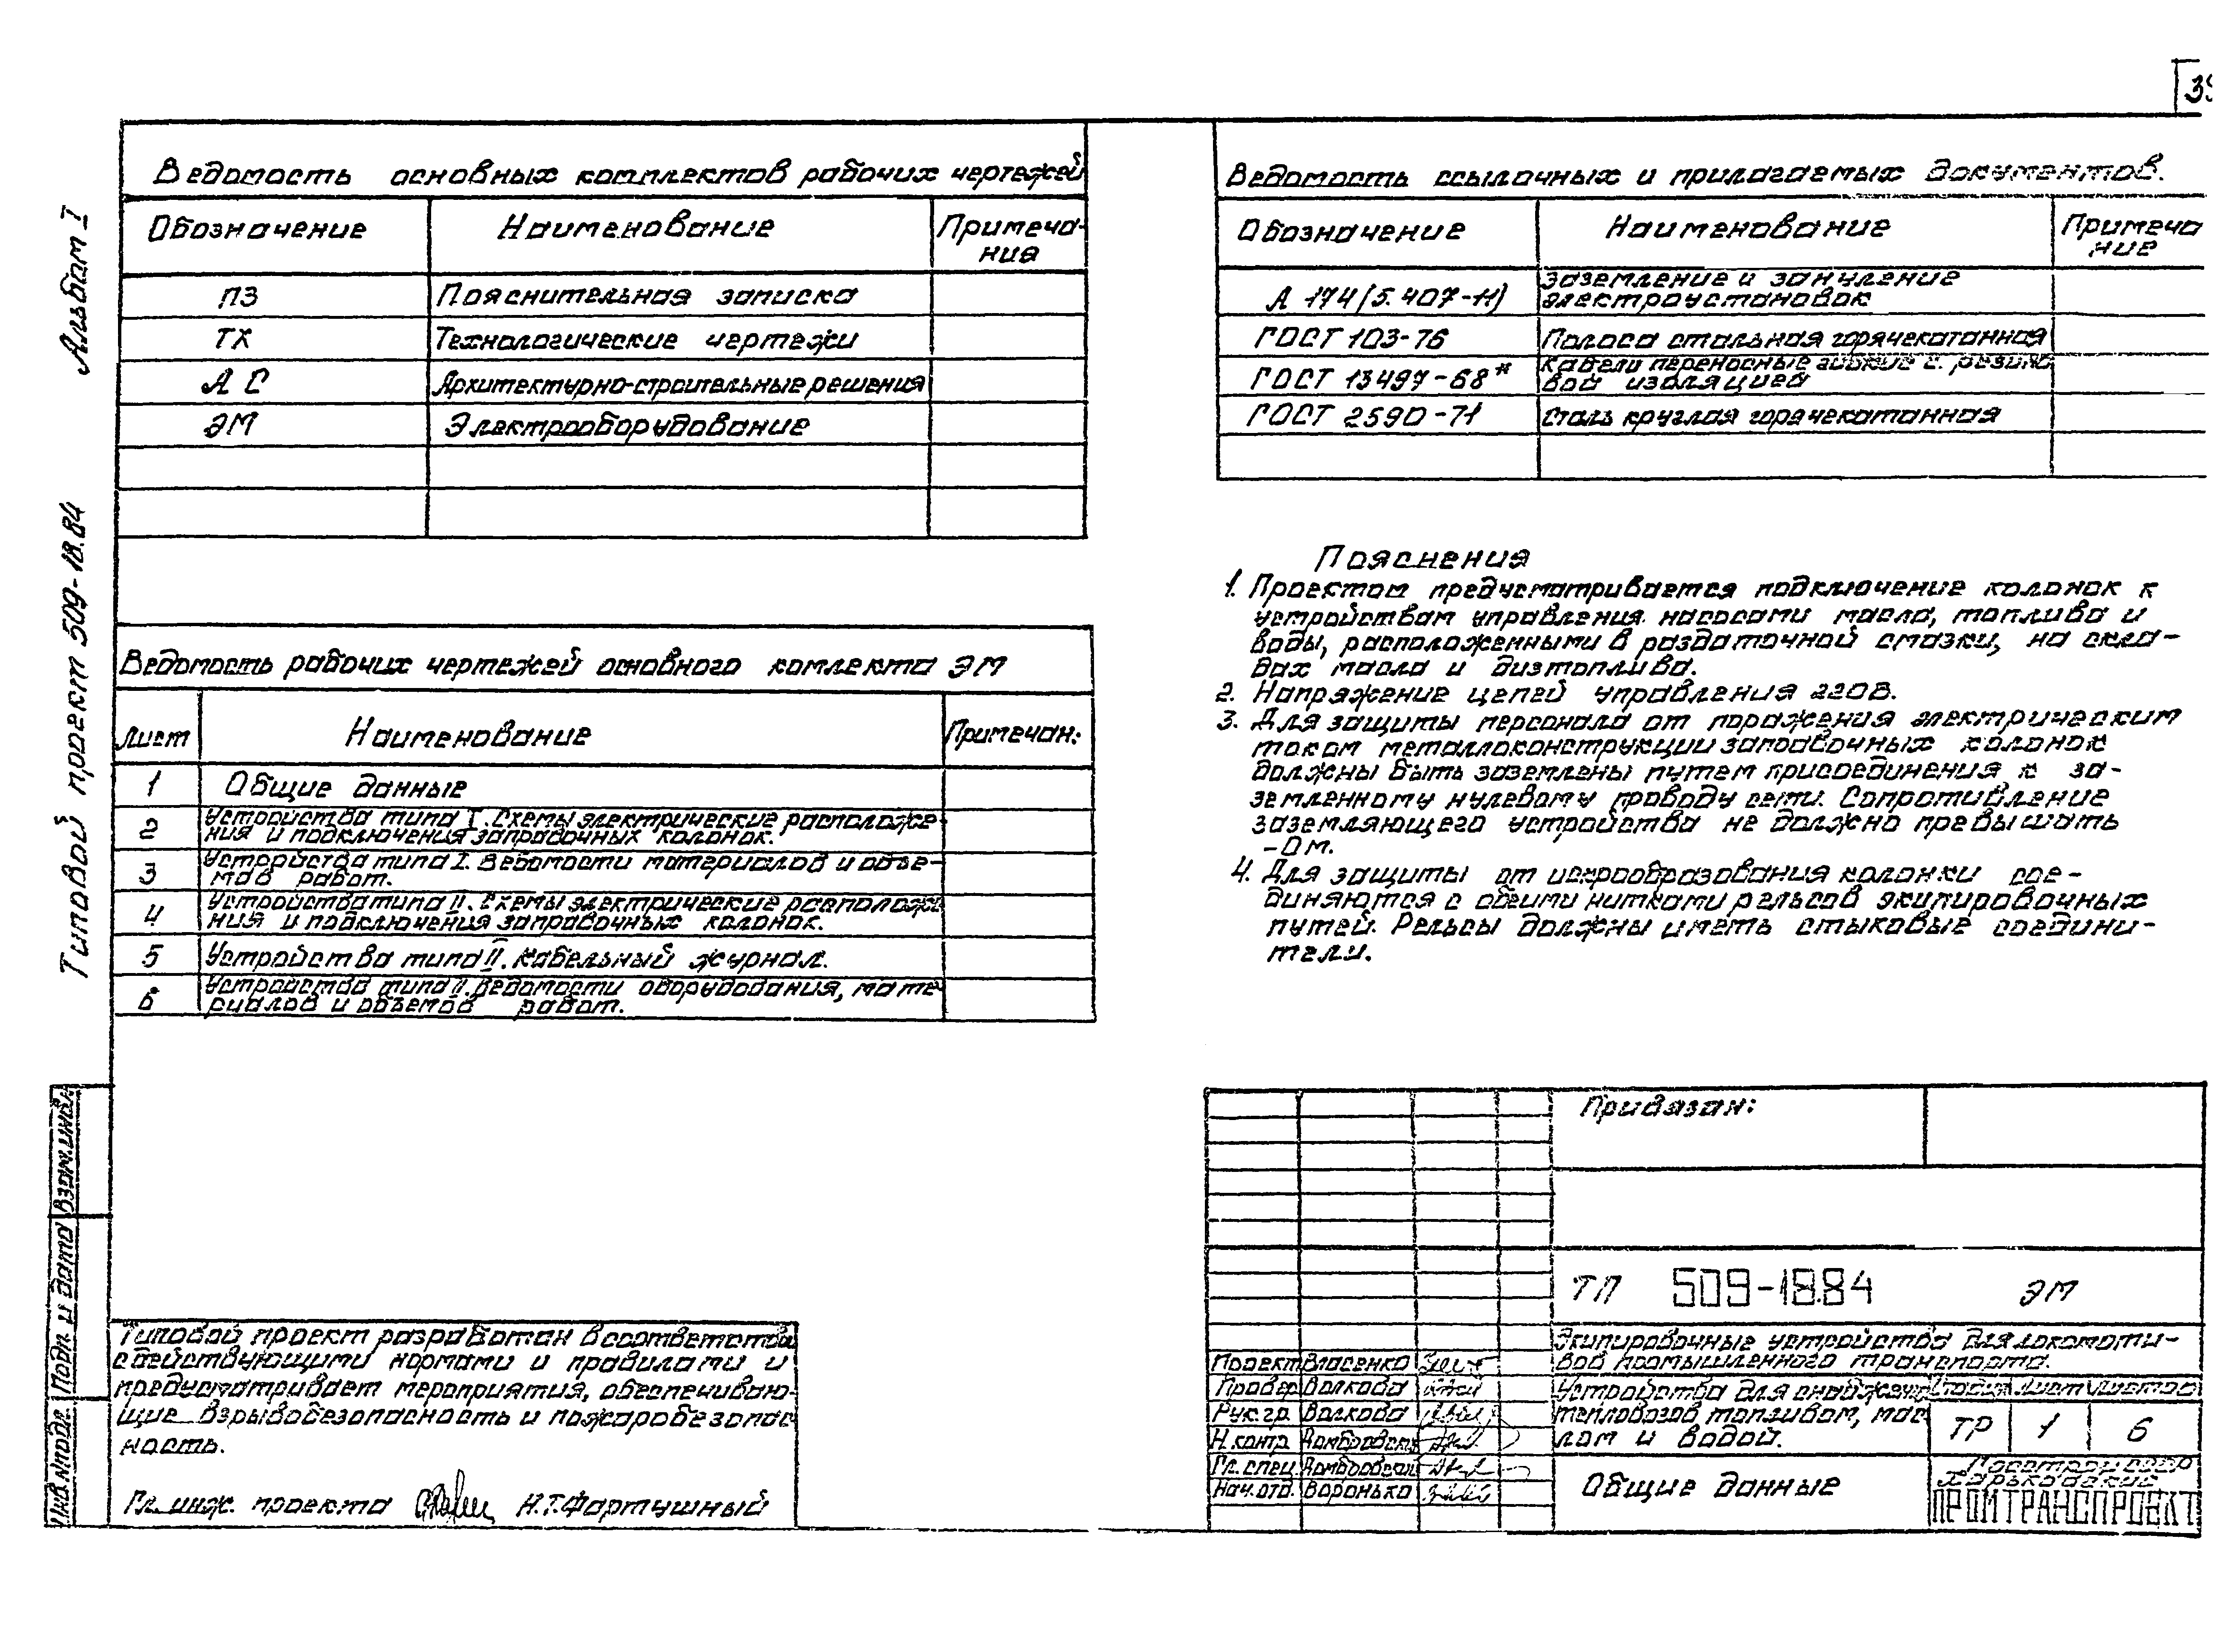 39
Альбом I
Типовой проект 509-18.84
Ведомость основных комплектов рабочих чертежей
Обозначение Наименование Примеча-
ния
ПЗ Пояснительная записка
ТХ Технологические чертежи
АС Архитектурно-строительные решения
ЭМ Электрооборудование
Ведомость рабочих чертежей основного комлекта ЭМ
Лист Наименование Примечан:
1 Общие данные
2 Устройства типа I. Схемы электрические расположе-
ния и подключения заправочных колонок.
3 Устройства типа I. Ведомости материалов и объе-
мов работ.
4 Устройства типа II. Схемы электрические расположе-
ния и подключения заправочных колонок.
5 Устройства типа II. Кабельный журнал.
6 Устройства типа II. Ведомости оборудования, мате-
риалов и объемов работ.
Типовой проект разработан в соответствии
с действующими нормами и правилами и
предусматривает мероприятия, обеспечиваю-
щие взрывобезопасность и пожаробезопас
ность.
Гл. инж. проекта Н.Т.Фартушный
Взам.инв.
Подп. и дата
Инв.Nподл.
Ведомость ссылочных и прилагаемых документов.
Обозначение Наименование Примеча
ние
А 174(5.407-11) Заземление и зануление
электроустановок
ГОСТ 103-76 Полоса стальная горячекатанная
ГОСТ 13497-68* Кабели переносные гибкие с резино
вой изоляцией
ГОСТ 2590-71 Сталь круглая горячекатанная
Пояснения
1. Проектом предусматривается подключение колонок к
устройствам управления насосами масла, топлива и
воды, расположенными в раздаточной смазки, на скла-
дах масла и дизтоплива.
2. Напряжение цепей управления 220В.
3. Для защиты персонала от поражения электрическим
током металлоконструкции заправочных колонок
должны быть заземлены путем присоединения к за-
земленному нулевому проводу сети. Сопротивление
заземляющего устройства не должно превышать
-Ом.
4. Для защиты от искрообразования колонки сое-
диняются с обеими нитками рельсов экипировочных
путей. Рельсы должны иметь стыковые соедини-
тели.
Привязан:
ТП 509-18.84 ЭМ
Экипировочные устройства для локомоти-
вов промышленного транспорта.
Проект Власенко
Провер Волкова
Рук.гр. Волкова
Н.контр Домбровск
Гл.спец Домбровский
Нач.отд. Воронько
Устройства для снабжения
тепловозов топливом, мас
лом и водой.
Стадия Лист Листов
ТР 1 6
Общие данные
Госстрой СССР
Харьковский
ПРОМТРАНСПРОЕКТ